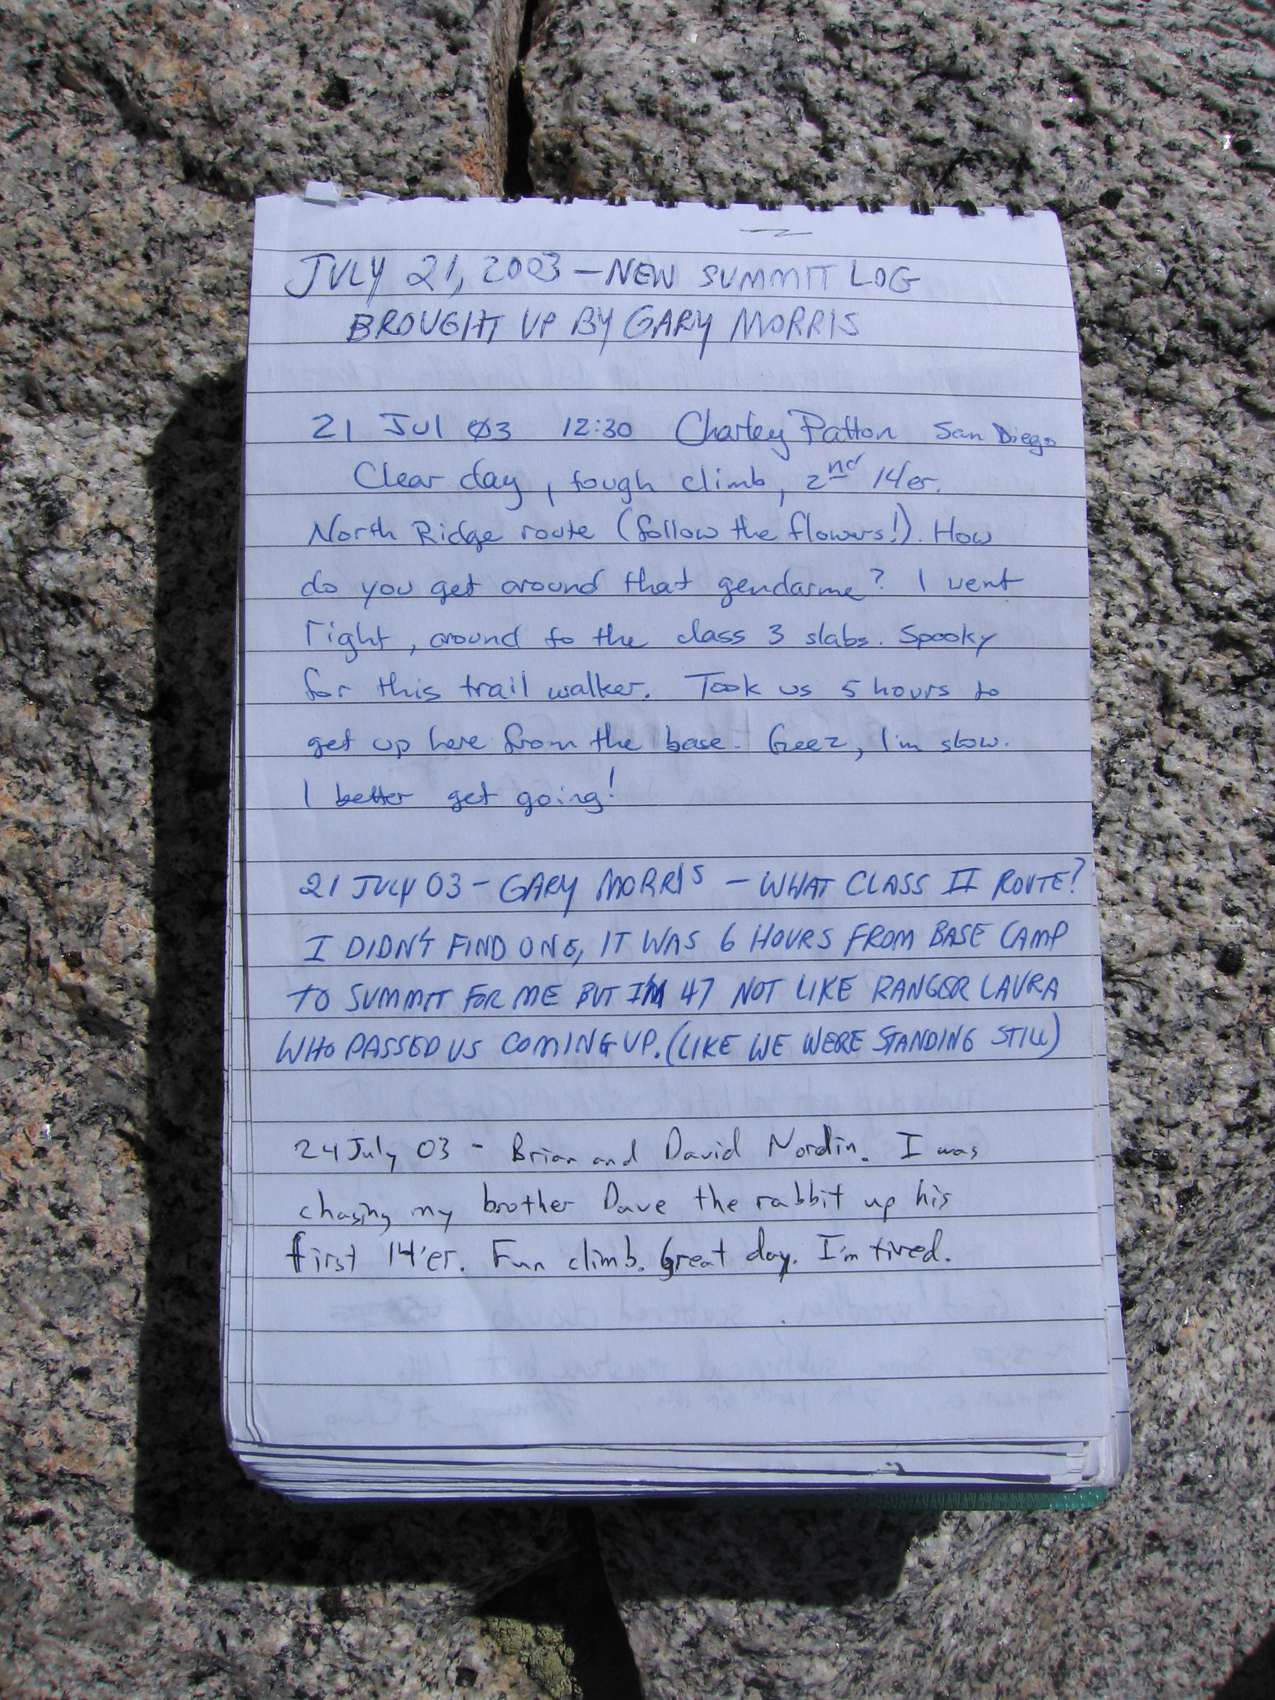 JULY 21, 2003 – NEW SUMMIT LOG
BROUGHT UP BY GARY MORRIS
21 Jul 03 12:30 Charley Patton San Diego
Clear day, tough climb, 2nd 14er.
North Ridge route (follow the flowers!). How
do you get around that gendarme? I went
right, around to the class 3 slabs. Spooky
for this trail walker. Took us 5 hours to
get up here from the base. Geez, I'm slow.
I better get going!
21 JULY 03 – GARY MORRIS – WHAT CLASS II ROUTE?
I DIDN'T FIND ONE, IT WAS 6 HOURS FROM BASE CAMP
TO SUMMIT FOR ME BUT I'M 47 NOT LIKE RANGER LAURA
WHO PASSED US COMING UP. (LIKE WE WERE STANDING STILL)
24 July 03 – Brian and David Nordin. I was
chasing my brother Dave the rabbit up his
first 14'er. Fun climb. Great day. I'm tired.